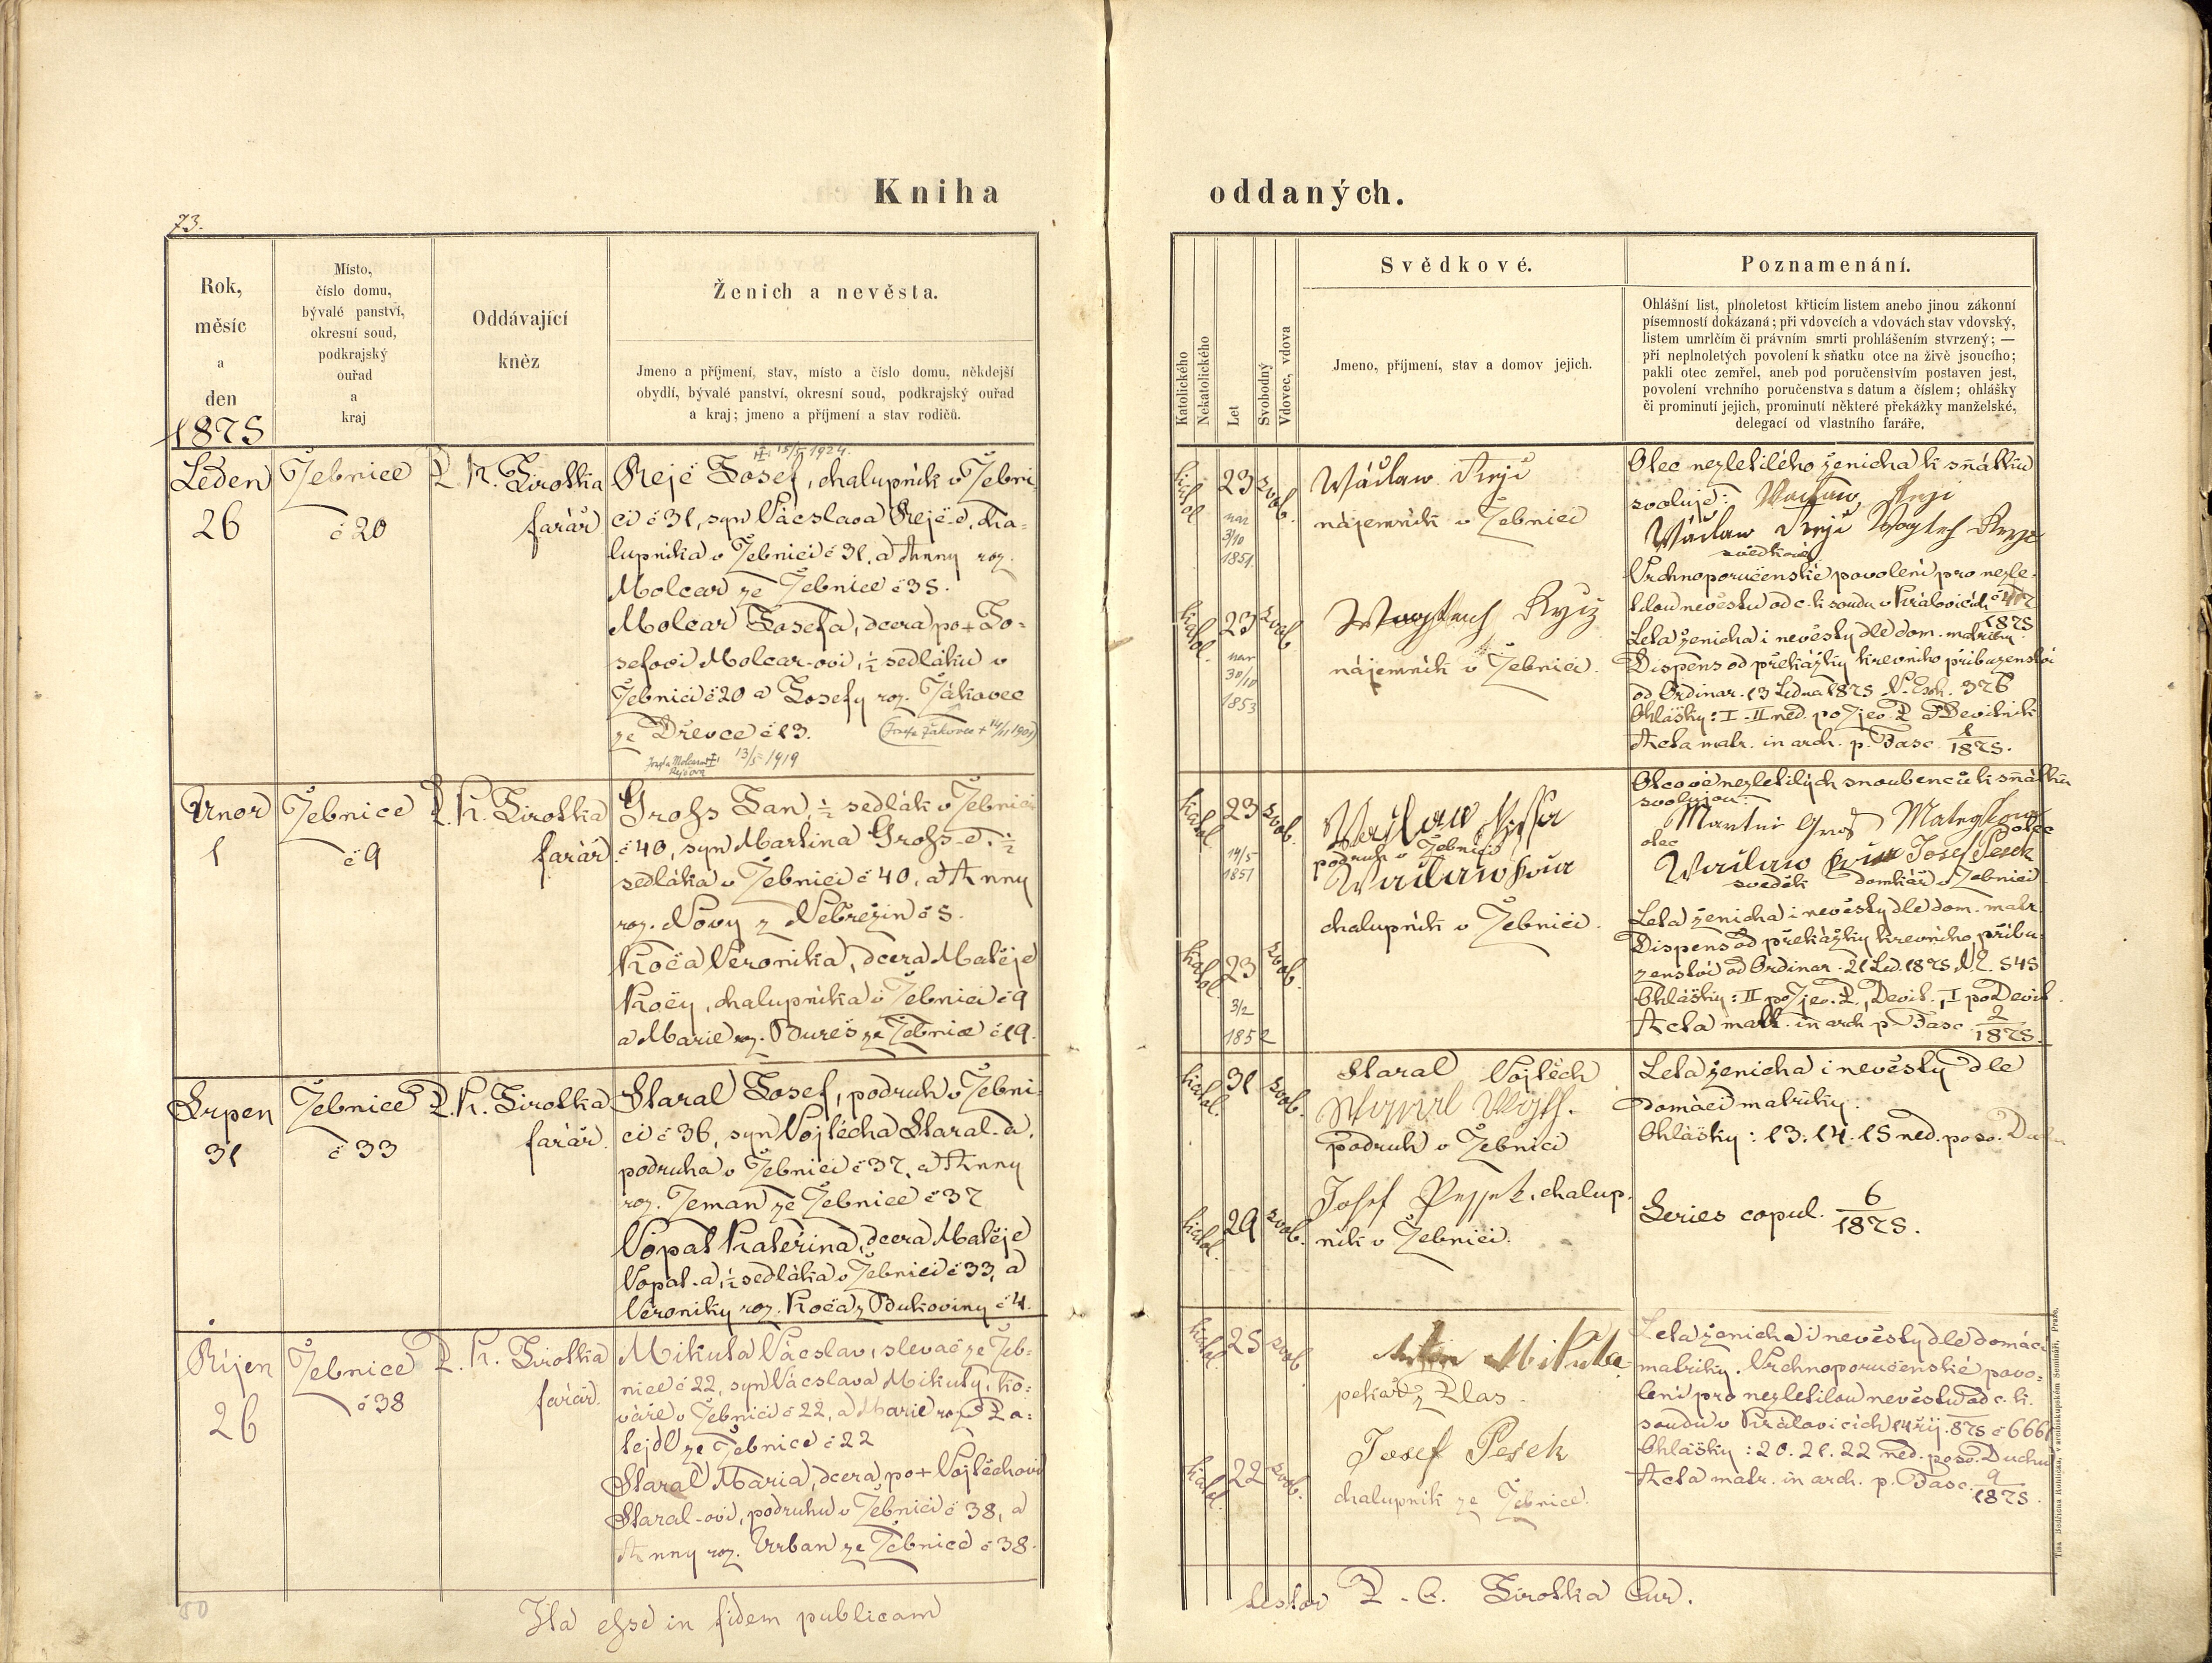 Kniha
oddaných.
73.
Rok,
měsíc
a
den
1875
Místo,
číslo domu,
bývalé panství,
okresní soud,
podkrajský
ouřad
a
kraj
Oddávající
kněz
Ženich a nevěsta.
Jmeno a příjmení, stav, místo a číslo domu, někdejší
obydlí, bývalé panství, okresní soud, podkrajský ouřad
a kraj; jmeno a příjmení a stav rodičů.
Katolického
Nekatolického
Let
Svobodný
Vdovec, vdova
Svědkové.
Jmeno, příjmení, stav a domov jejich.
Poznamenání.
Ohlášní list, plnoletost křticím listem anebo jinou zákonní
písemností dokázaná; při vdovcích a vdovách stav vdovský,
listem umrlčím či právním smrti prohlášením stvrzený; —
při neplnoletých povolení k sňatku otce na živě jsoucího;
pakli otec zemřel, aneb pod poručenstvím postaven jest,
povolení vrchního poručenstva s datum a číslem; ohlášky
či prominutí jejich, prominutí některé překážky manželské,
delegací od vlastního faráře.
Leden
26
Žebnice
č 20
P. K. Sirotka
farář
15/5 1924.
Rejč Josef, chalupník v Žebni-
ci č 31, syn Václava Rejč-e, cha-
lupníka v Žebnici č 31, a Anny roz.
Molcar ze Žebnice č 35.
Molcar Josefa, dcera po + Jo-
sefovi Molcar-ovi, ½ sedláku v
Žebnici č 20 a Josefy roz. Žákovec
ze Dřevce č 13.
(Josefa Žákovec + 14/11 1901)
13/5 1919
katol
23
nar
3/10
1851
svob.
katol.
23
nar
30/10
1853
svob
Wáclaw Rejč
nájemník v Žebnici
nájemník v Žebnici.
Otec nezletilého ženicha k sňatku
svoluje: Waclaw Rejč
svědkové
Vrchnoporučenské povolení pro nezle-
tilou nevěstu od c. k soudu v Kralovicích č
1875
Leta ženicha i nevěsty dle dom. matriky.
Dispens od překážky krevního příbuzenství
od Ordinar. 13 Ledna 1875 N. Esh. 376
Ohlášky: I - II ned. po Zjev. P a Devítník
Acta matr. in arch. p. Fasc. 1/1875.
Únor
1
Žebnice
č 9
P. K. Sirotka
farář
Grohs Jan, ½ sedlák v Žebnici
č 40, syn Martina Grohs-e, ½
sedláka v Žebnici č 40, a Anny
roz. Nový z Nebřezin č 5.
Koča Veronika, dcera Matěje
Kočy, chalupníka v Žebnici č 9
a Marie roz. Bureš ze Žebnice č 19.
katol
23
14/5
1851
svob.
katol
23
3/2
1852
svob.
podruh v Žebnici
Waclaw Koča
chalupník v Žebnici.
Otcové nezletilých snoubenců k sňatku
svolujou:
otec
otec
Josef Pesek
svědek domkář v Žebnici
Leta ženicha i nevěsty dle dom. matr.
Dispens od překážky krevního příbu-
zenství od Ordinar. 21 Led. 1875 N. E. 545
Ohlášky: II po Zjev. P., Devít., I po Devít.
Acta matr. in arch p. Fasc. 2/1875
Srpen
31
Žebnice
č 33
P. K. Sirotka
farář.
Staral Josef, podruh v Žebni-
ci č 36, syn Vojtěcha Staral-a,
podruha v Žebnici č 37, a Anny
roz. Zeman ze Žebnice č 37
Vopat Kateřina, dcera Matěje
Vopat-a, ½ sedláka v Žebnici č 33, a
Veroniky roz. Koča z Bukoviny č 4.
katol.
31
svob.
katol.
29
svob.
Staral Vojtěch
podruh v Žebnici
chalup-
ník v Žebnici.
Leta ženicha i nevěsty dle
domácí matriky.
Ohlášky: 13. 14. 15 ned. po sv. Duchu
Series copul. 6/1875.
Říjen
26
Žebnice
č 38
P. K. Sirotka
farář.
Mikuta Václav, slevač ze Žeb-
nice č 22, syn Václava Mikuty, ko-
váře v Žebnici č 22, a Marie roz. Pa-
tejdl ze Žebnice č 22
Staral Maria, dcera po + Vojtěchovi
Staral-ovi, podruhu v Žebnici č 38, a
Anny roz. Urban ze Žebnice č 38.
katol.
25
svob
katol.
22
svob.
Mikuta
pekař z Plas.
Josef Pesek
chalupník ze Žebnice.
Leta ženicha i nevěsty dle domácí
matriky. Vrchnoporučenské povo-
lení pro nezletilou nevěstu od c. k.
soudu v Kralovicích 14 říj. 875 č 6661
Ohlášky: 20. 21. 22 ned. po sv. Duchu
Acta matr. in arch. p. Fasc. 9/1875.
50
Ita esse in fidem publicam
testor P. C. Sirotka Cur.